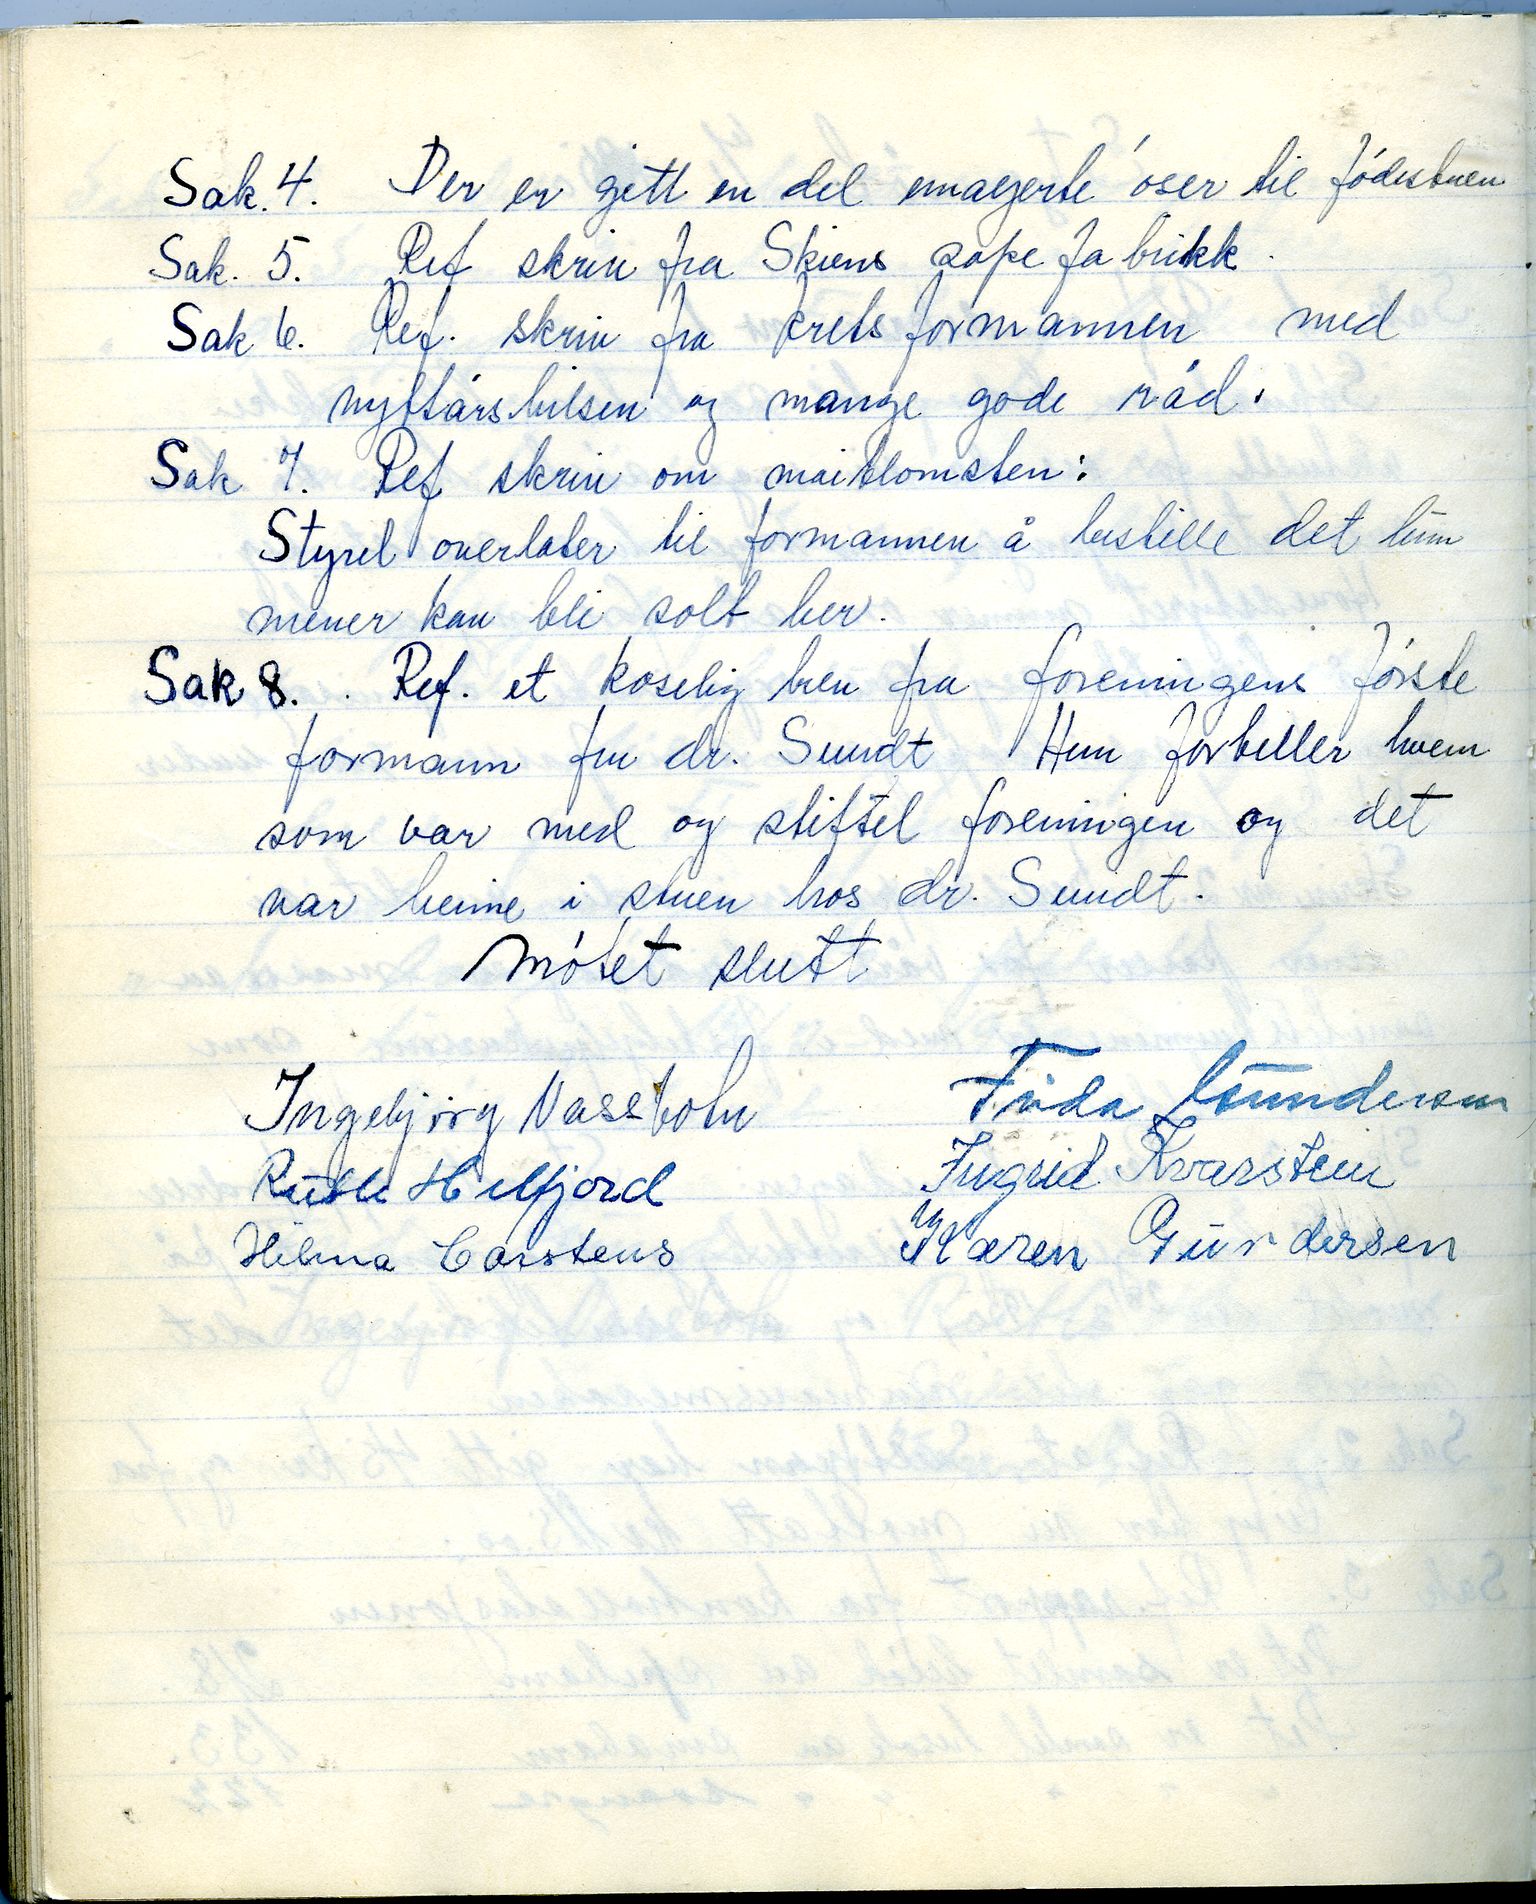 Sak. 4. Der er gitt en del emaljerte øser til fødestuen
Sak. 5. Ref skriv fra Skiens såpe fabrikk.
Sak 6. Ref. skriv fra kretsformannen med
nyttårshilsen og mange gode råd.
Sak 7. Ref skriv om maiblomsten:
Styret overlater til formannen å bestille det hun
mener kan bli solt her.
Sak 8. Ref. et koselig brev fra foreningens første
formann fru dr. Sundt Hun forteller hvem
som var med og stiftet foreningen og det
var heime i stuen hos dr. Sundt.
Møtet slutt
Ingebjørg Vassbotn Frida Gundersen
Ruth Hilfjord Ingrid Kvarstein
Hilma Carstens Karen Gundersen